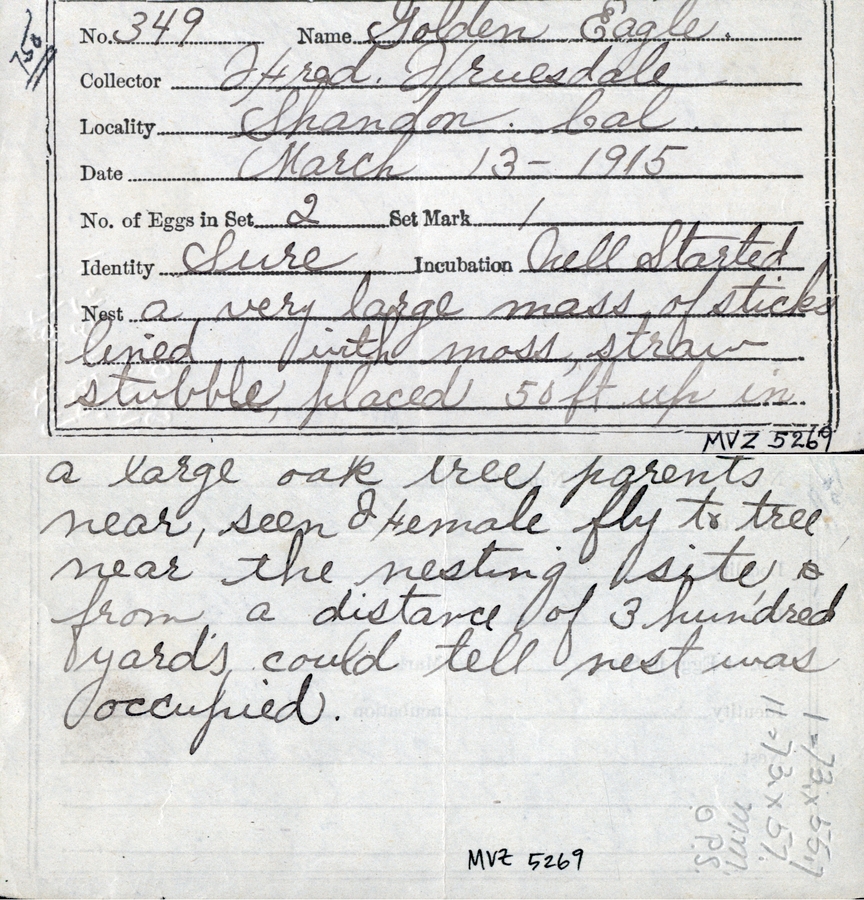 750
No. 349 Name Golden Eagle.
Collector Fred. Truesdale
Locality Shandon. Cal.
Date March 13 - 1915
No. of Eggs in Set 2 Set Mark 1
Identity Sure Incubation Well Started
Nest a very large mass of sticks
lined with moss, straw
stubble, placed 50 ft up in
MVZ 5269
a large oak tree parents
near, seen Female fly to tree
near the nesting site &
from a distance of 3 hundred
yard's could tell nest was
occupied.
1 = 73. x 55.7
11 = 73. x 57.
m.m.
MVZ 5269